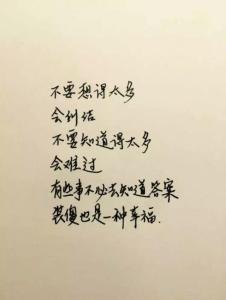 不要想得太多
会纠结
不要知道得太多
会难过
有些事不必去知道答案
装傻也是一种幸福.